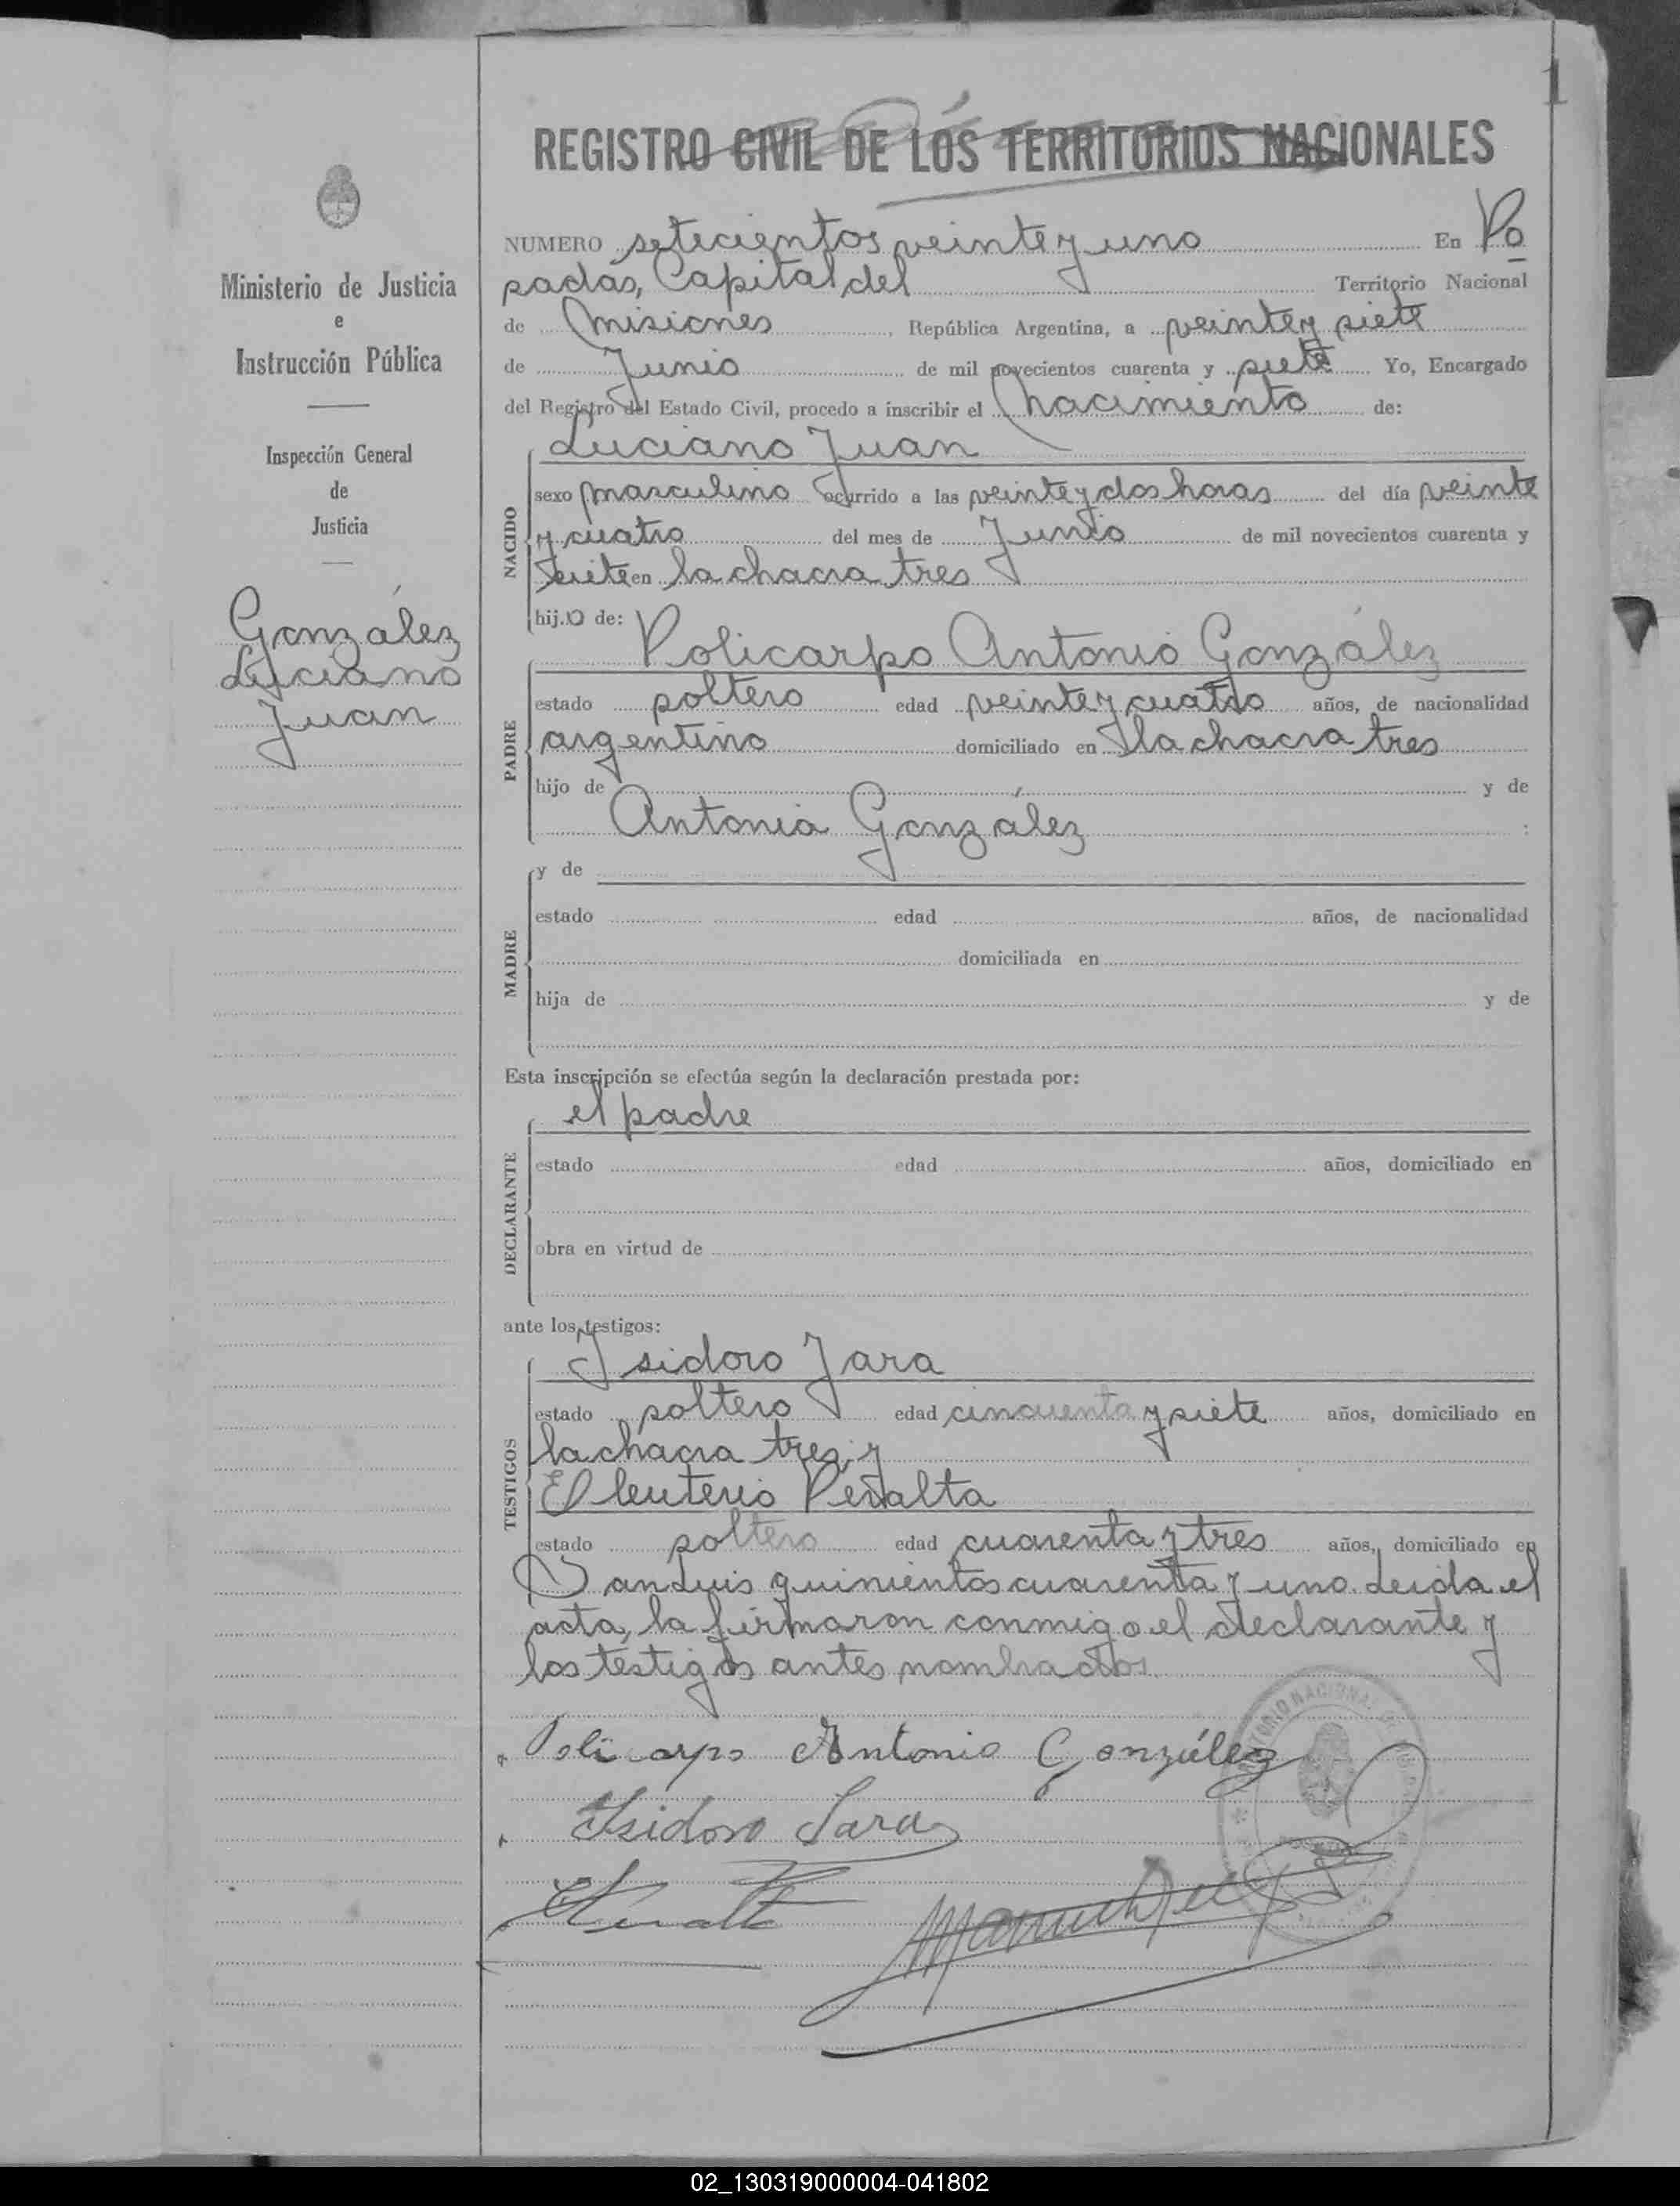 1
REGISTRO CIVIL DE LOS TERRITORIOS NACIONALES
Ministerio de Justicia
e
Instrucción Pública
Inspección General
de
Justicia
González
Luciano
Juan
NUMERO setecientos veinte y uno En Po
sadas, Capital del Territorio Nacional
de Misiones, República Argentina, a veinte y siete
de Junio de mil novecientos cuarenta y siete Yo, Encargado
del Registro del Estado Civil, procedo a inscribir el nacimiento de:
NACIDO
Luciano Juan
sexo masculino ocurrido a las veinte y dos horas del día veinte
y cuatro del mes de Junio de mil novecientos cuarenta y
siete en la chacra tres
hij.o de:
PADRE
Policarpo Antonio González
estado soltero edad veinte y cuatro años, de nacionalidad
argentino domiciliado en la chacra tres
hijo de y de
Antonia González
MADRE
y de
estado edad años, de nacionalidad
domiciliada en
hija de y de
Esta inscripción se efectúa según la declaración prestada por:
DECLARANTE
el padre
estado edad años, domiciliado en
obra en virtud de
ante los testigos:
TESTIGOS
Isidoro Jara
estado soltero edad cincuenta y siete años, domiciliado en
la chacra tres, y
Eleuterio Peralta
estado soltero edad cuarenta y tres años, domiciliado en
San Luis quinientos cuarenta y uno. Leida el
acta, la firmaron conmigo el declarante y
los testigos antes nombrados
Policarpo Antonio González
Isidoro Jara
TERRITORIO NACIONAL DE
02_130319000004-041802